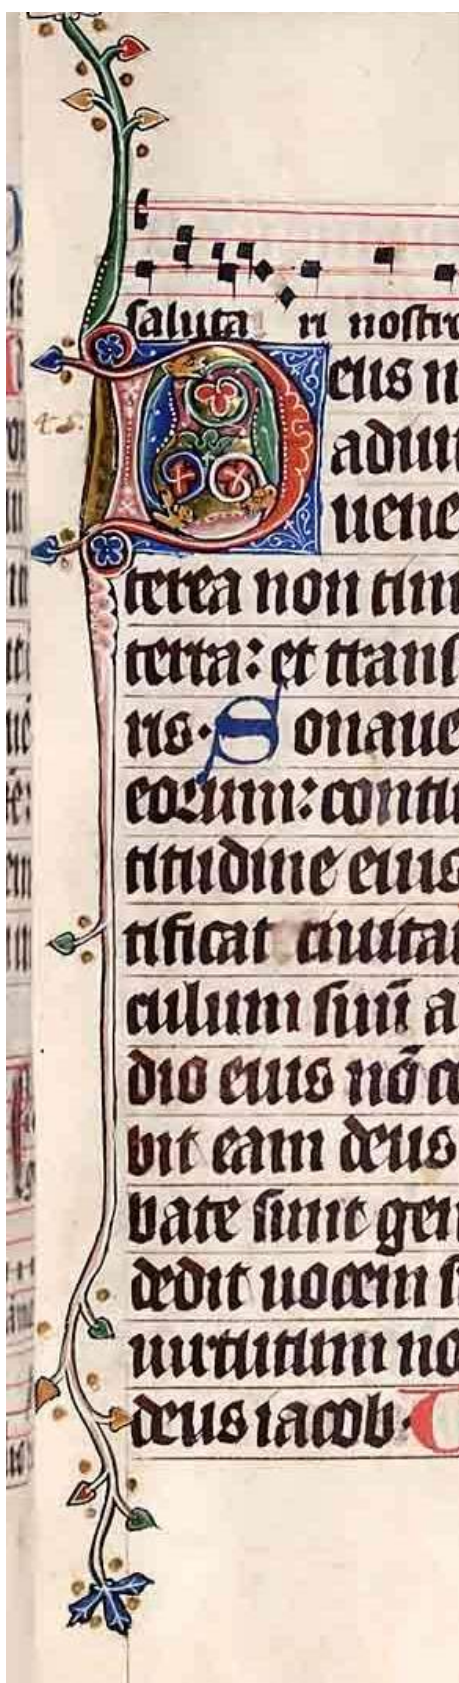 saluta ri nostro
Deus n
adiu
uene
terea non tim
terra: et trans
ris. Sonaue
eorum: contu
titudine eius
tificat
culum suū a
dio eius nō co
bit eam deus
bate sunt gen
dedit uocem s
uirtutum no
deus iacob.